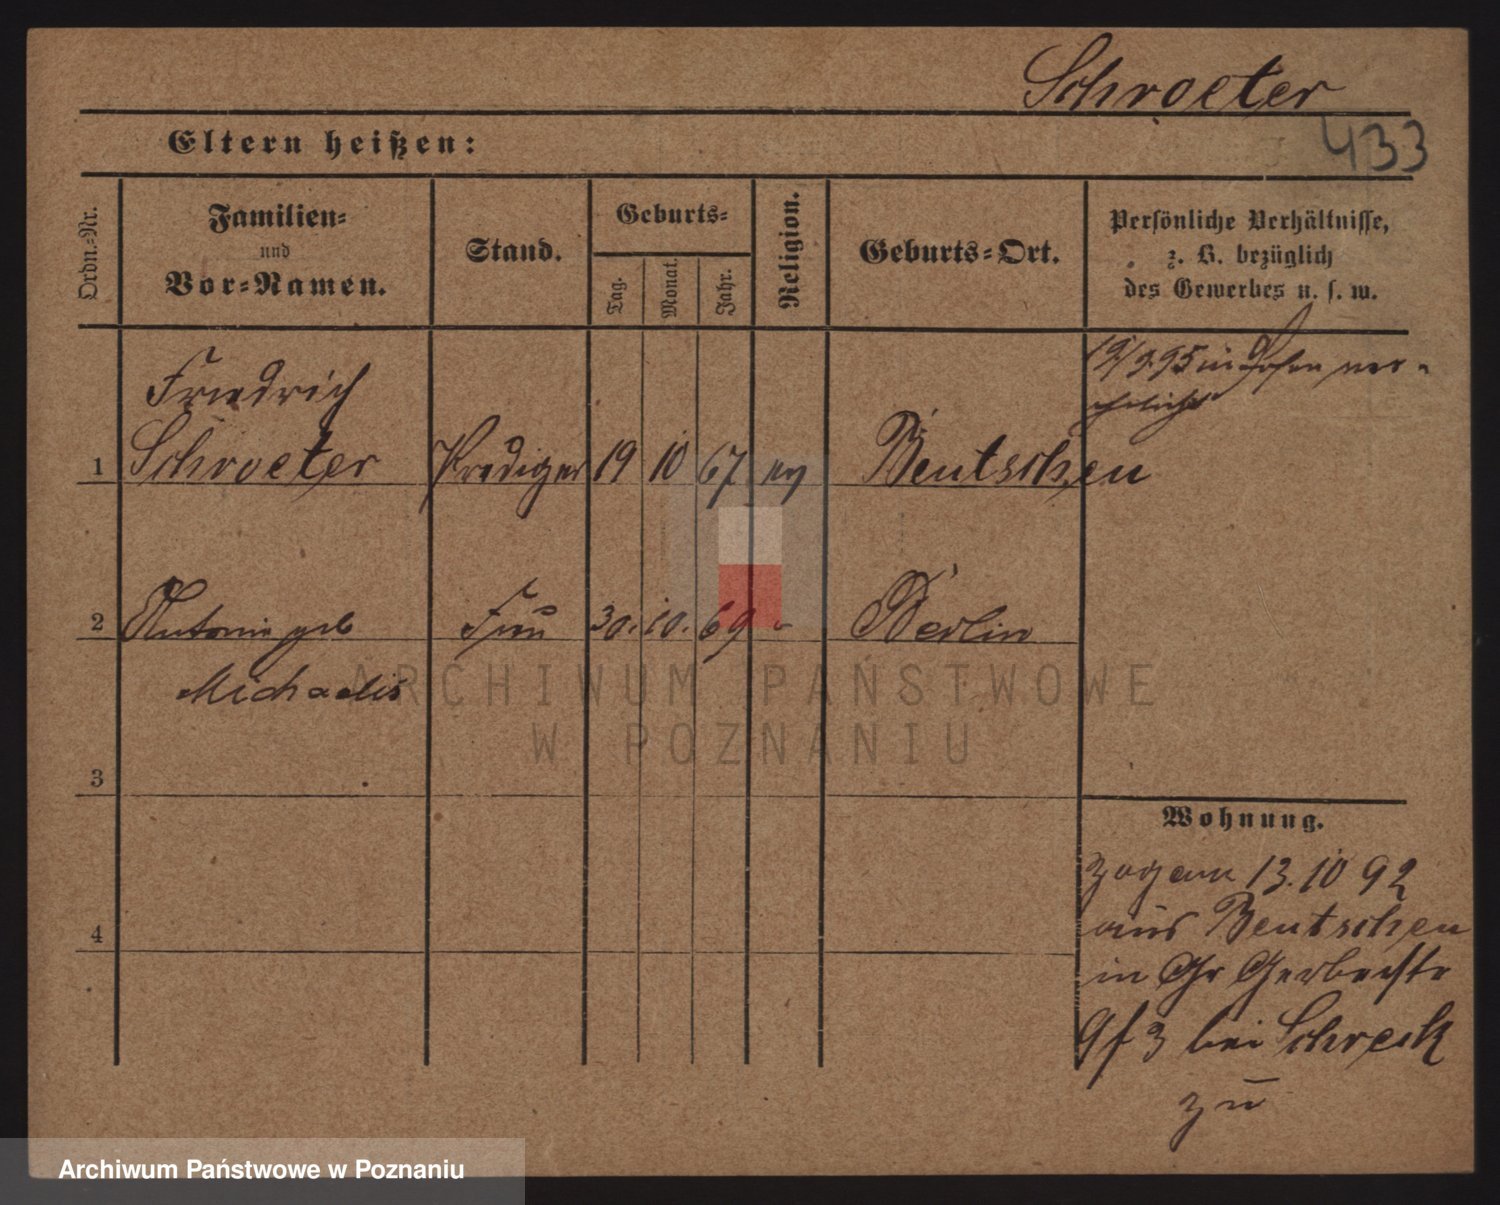 Schroeter
433
Eltern heißen:
Ordn.=Nr.
Familien=
und
Vor=Namen.
Stand.
Geburts=
Tag.
Monat.
Jahr.
Religion.
Geburts=Ort.
Persönliche Verhältnisse,
z. B. bezüglich
des Gewerbes u. s. w.
in Posen ver-
ehelicht
Friedrich
1 Schroeter Prediger 19 10 67 ev Bentschen
2 Antonie geb Frau 30. 10. 69 Berlin
Michaelis
3
4
Wohnung.
zog am 13.10 92
aus Bentschen
in Gr Gerberstr
bei Schreck
zu
ARCHIWUM PAŃSTWOWE
W POZNANIU
Archiwum Państwowe w Poznaniu